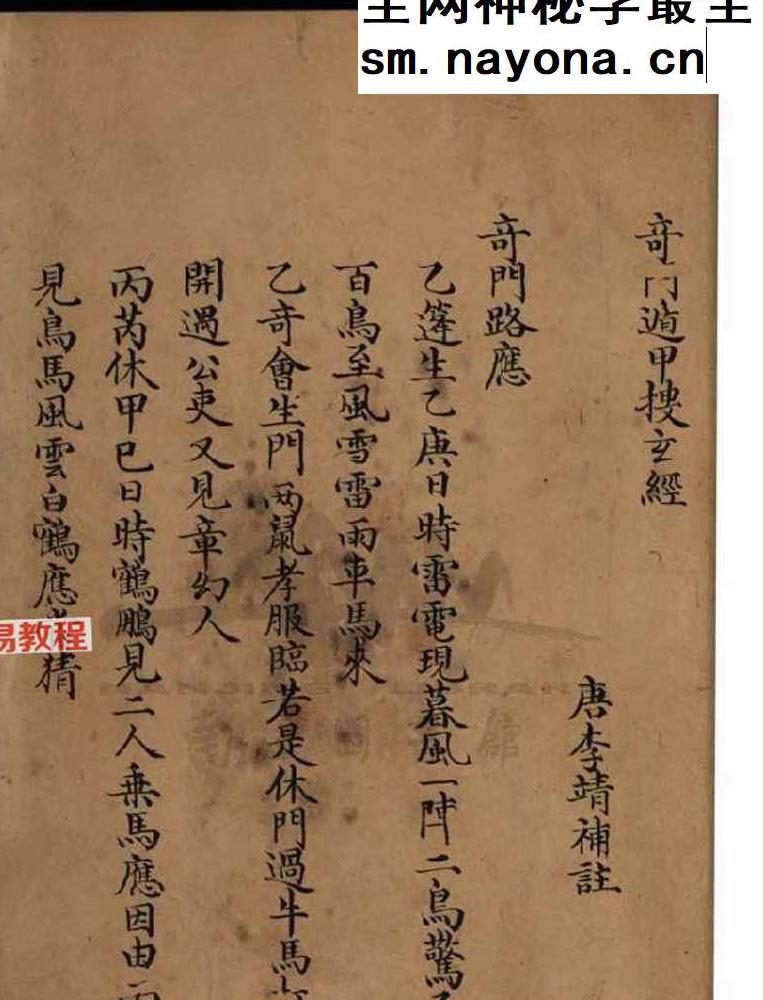 sm.nayona.cn
奇门遁甲搜玄經
唐李靖補註
奇門路應
乙篷生乙庚日時雷電現暮風一陣二鳥驚
百鳥至風雪雷雨車馬來
乙奇會生門兩鼠孝服臨若是休門過牛馬
開遇公吏又見章幻人
丙芮休甲巳日時鶴鵰見二人乘馬應因由二
見鳥馬風雲白鶴應猜
易教程